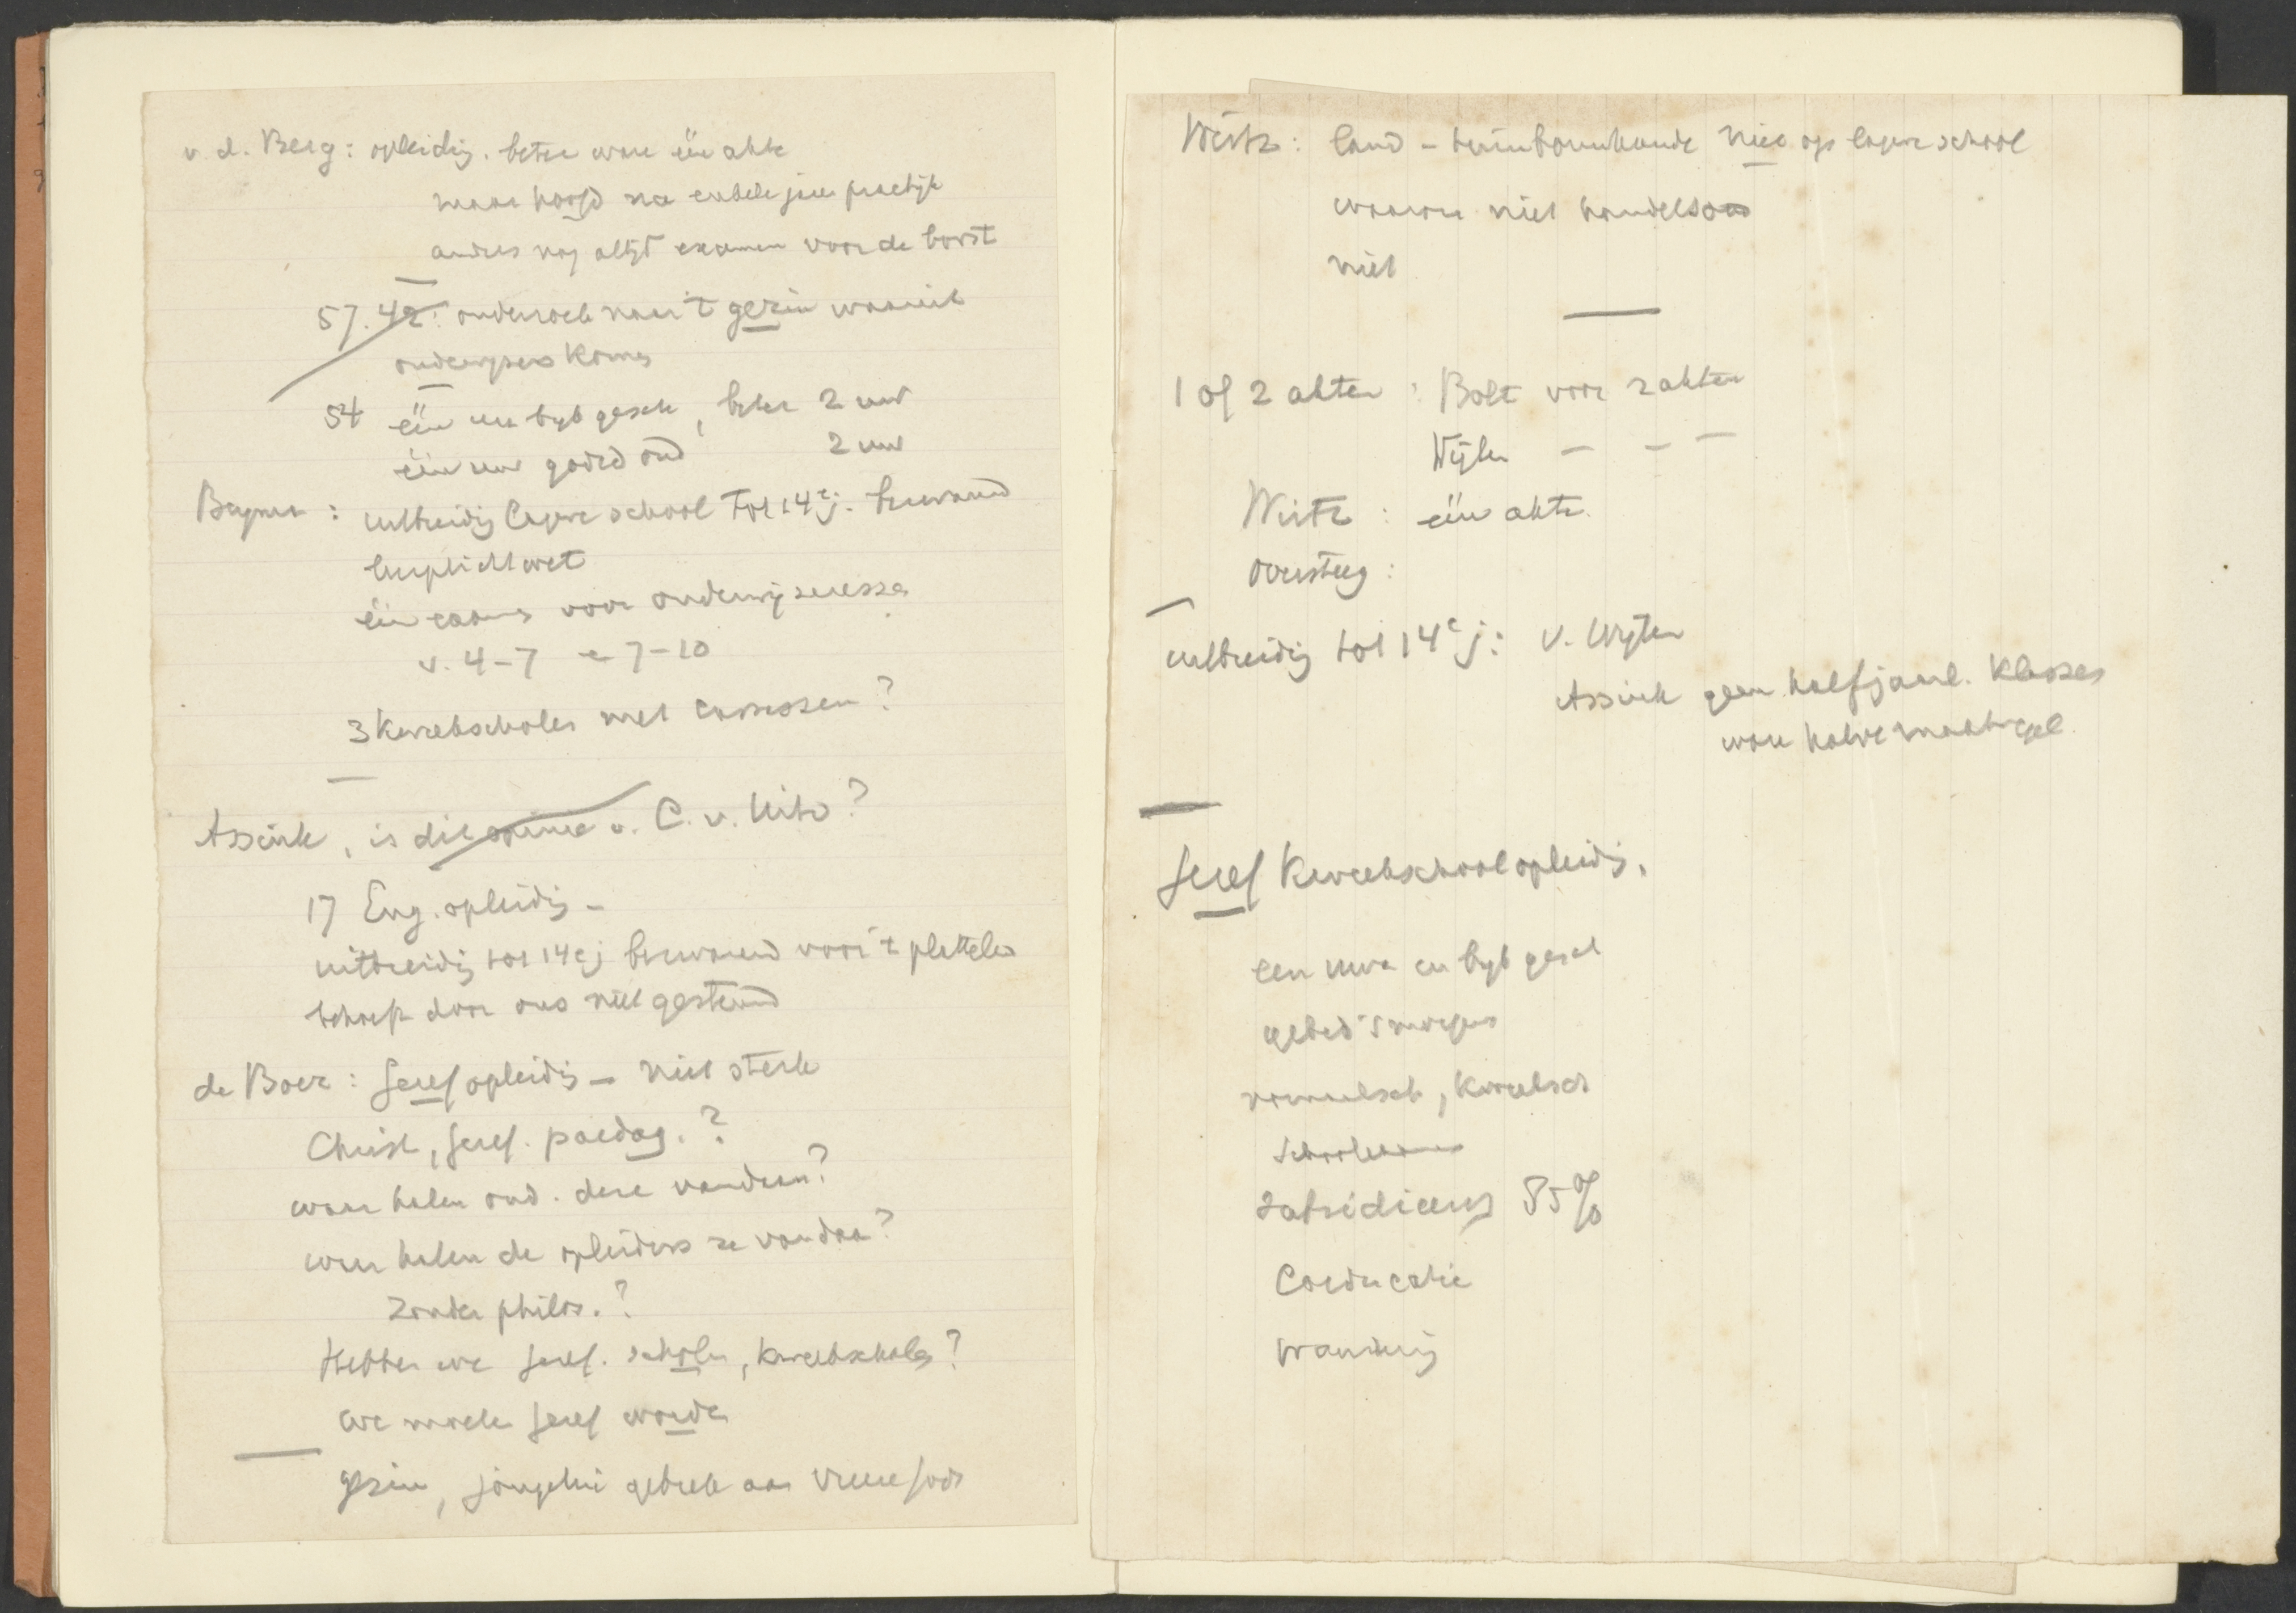 v. d. Berg: opleidig. beter ware één akte
maar hoofd na enkele jaren practijk
anders nog altijd examen voor de borst
57. 42: onderzoek naar 't gezin waaruit
onderwijzers komen
54 één uur bijb gesch, beter 2 uur
één uur godsd ond 2 uur
: uitbreidig lagere school tot 14e j. bezwaard
leerplichtwet
één examen voor onderwijzeressen
v. 4-7 en 7-10
3 kweekscholen met cursussen?
Assink, is dit opinie v. C. v. Uitv?
17 Eng. opleidig -
uitbreidig tot 14e j bezwaard voor 't platteland
behoeft door ons niet gesteund
de Boer: Geref opleidig - niet sterk
Christ, Geref. paedag.?
waar halen ond. deze vandaan?
waar halen de opleiders ze vandaan?
zonder philos.?
Hebben we Geref. scholen, kweekscholen?
we moeten Geref worden
gezin, jongelui gebrek aan vreeze Gods
Wirtz: land - tuinbouwkunde niet op lagere school
waarom niet handels
niet
1 of 2 akten: Bolt voor 2 akten
Wijlen - - -
Wirtz: één akte
Oversteeg:
uitbreidig tot 14e j: v. Wijlen
Assink geen halfjaarl. klassen
ware halve maatregel
Geref Kweekschoolopleidg.
een uur en bijb gesch
gebed 's morgens
normaalsch, kweeksch
Schoolexamen
subsidieerg 85%
Coeducatie